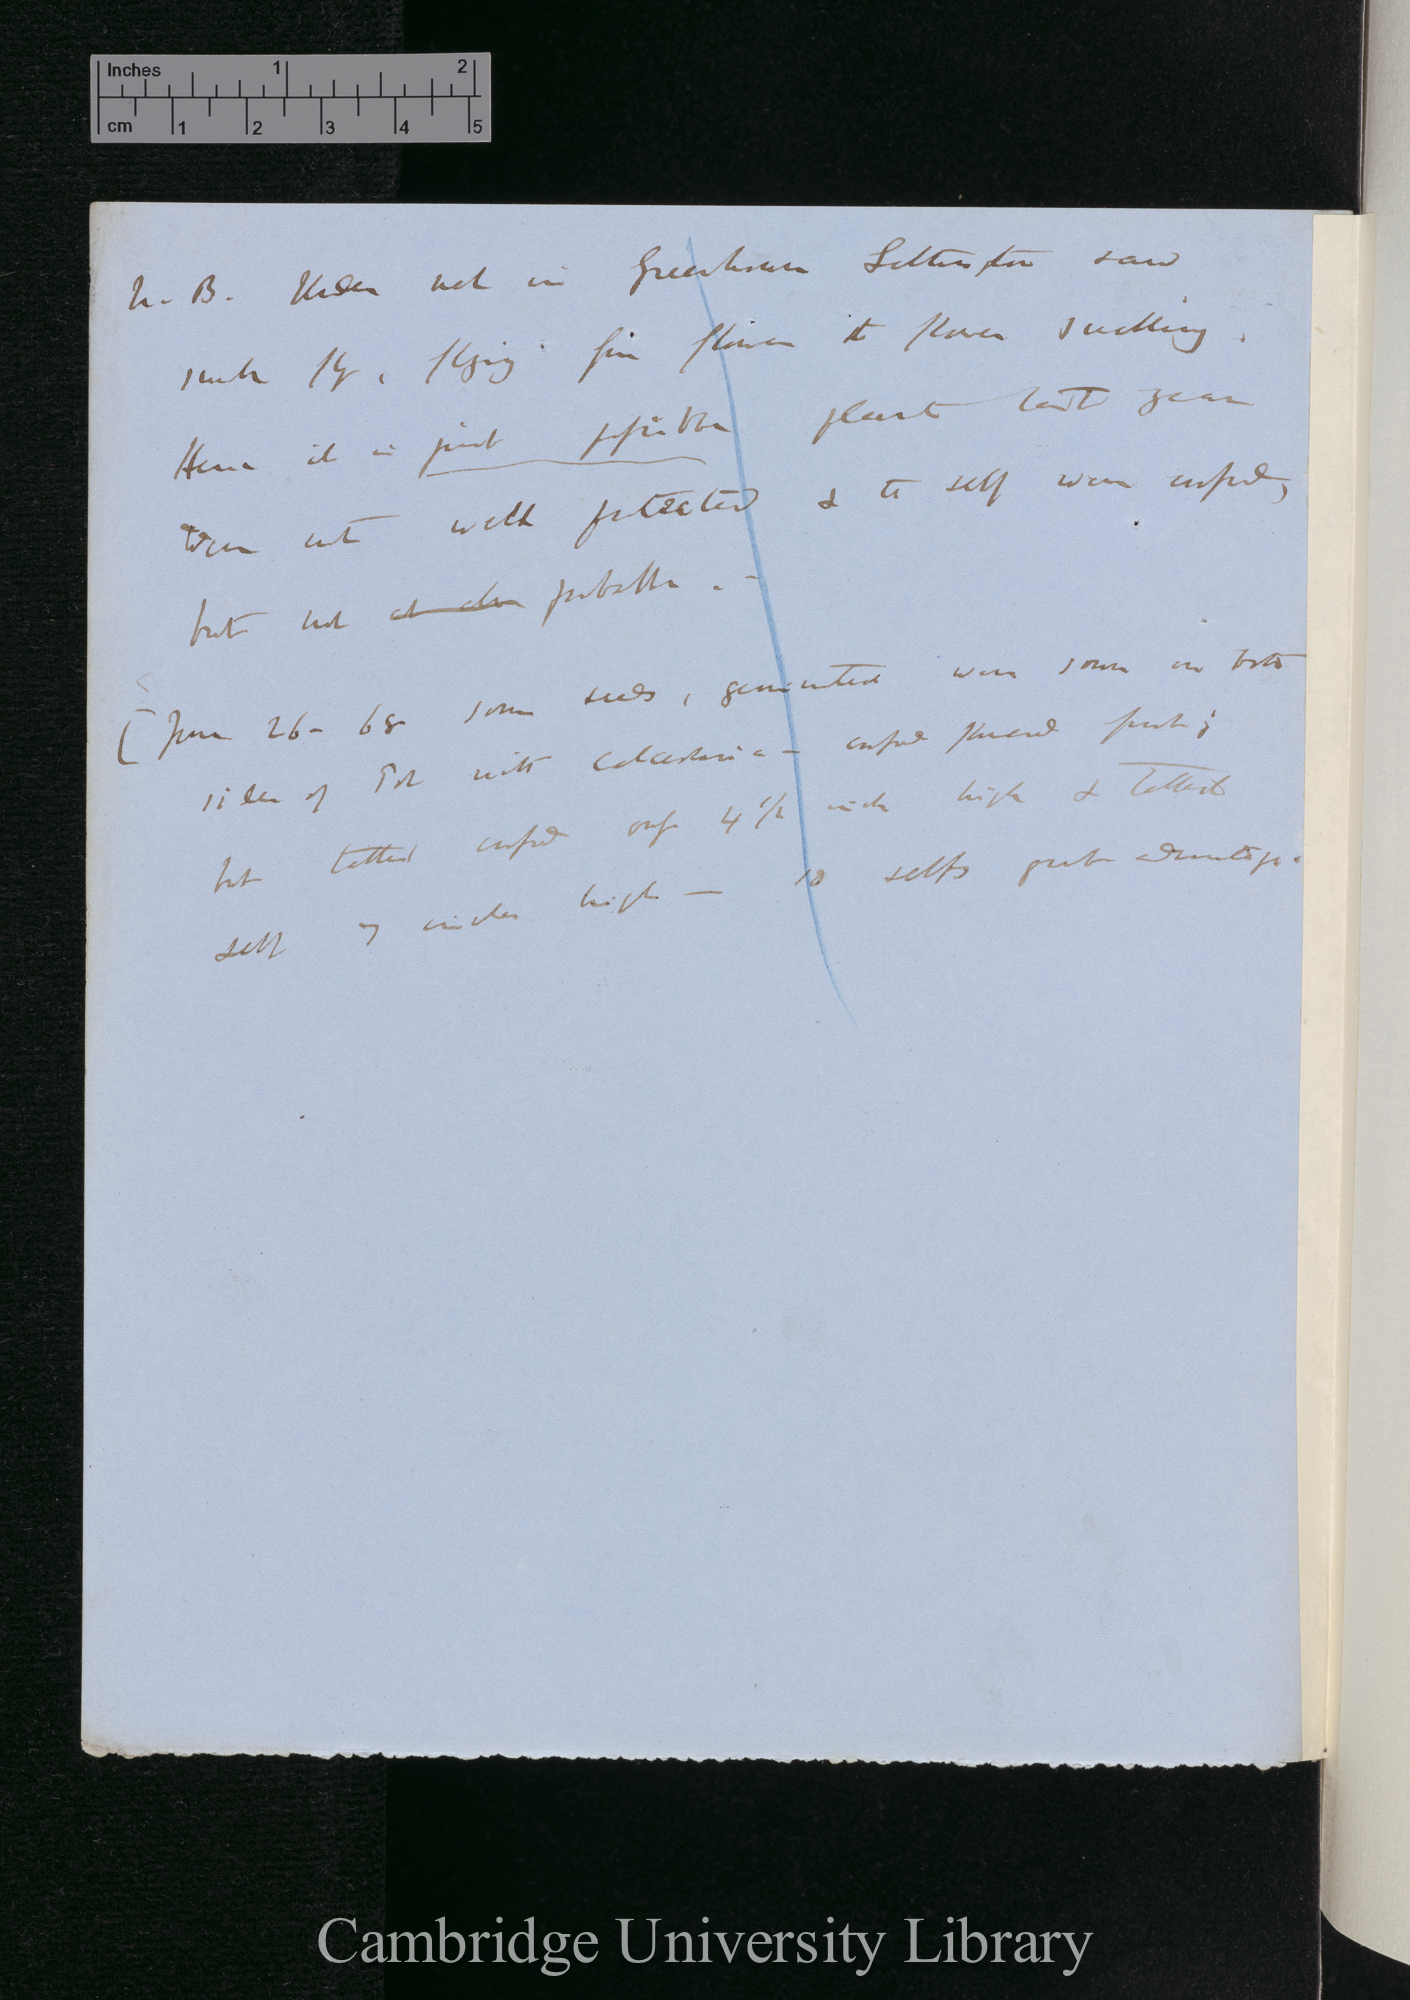 Inches 1 2
cm 1 2 3 4 5
N. B. Under net in Greenhouse Lettington saw
such fly, flying from flower to flower sucking.
Hence it is just possible plants last year
were not well protected & to self were crossed,
but not probable. —
[June 26 - 68 some seeds, germinated were sown on both
sides of Pot with Calceolaria — crossed flowered first;
but tallest crossed only 4 1/2 inch high & tallest
self 7 inches high — so selfs great advantage.
Cambridge University Library